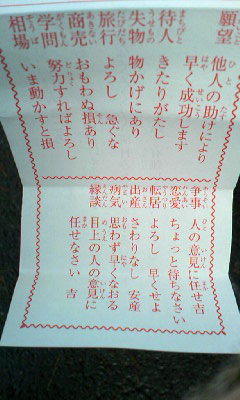 願望 他人の助けにより
早く成功します
待人 きたりがたし
失物 物かげにあり
旅行 よろし 急ぐな
商売 おもわぬ損あり
学問 努力すればよろし
相場 いま動かすと損
争事 人の意見に任せ吉
恋愛 ちょっと待ちなさい
転居 よろし 早くせよ
出産 さわりなし 安産
病気 思わず早くなおる
縁談 目上の人の意見に
任せなさい 吉